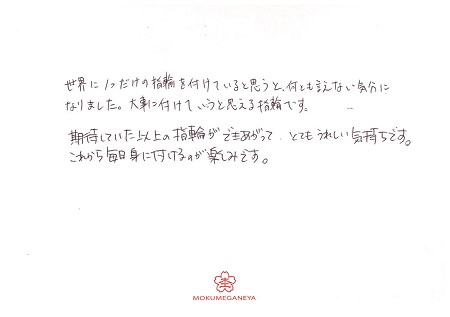 世界に1つだけの指輪を付けていると思うと、何とも言えない気分に
なりました。大事に付けていこうと思える指輪です。
期待していた以上の指輪ができあがって、とてもうれしい気持ちです。
これから毎日身に付けるのが楽しみです。
MOKUMEGANEYA